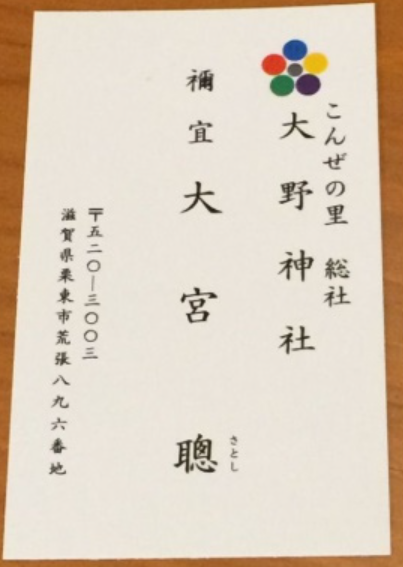 こんぜの里 総社
大野神社
禰宜 大宮 聰
さとし
〒五二〇―三〇〇三
滋賀県栗東市荒張八九六番地